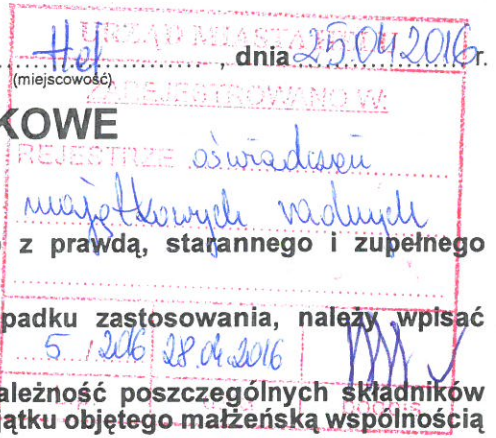 URZĄD MIASTA
Hel, dnia 25.04.2016r.
(miejscowość)
ZAREJESTROWANO W:
KOWE
REJESTRZE oświadczeń
majątkowych radnych
z prawdą, starannego i zupełnego
padku zastosowania, należy wpisać
5 / 2016 28.04.2016
ależność poszczególnych składników
jątku objętego małżeńską wspólnością